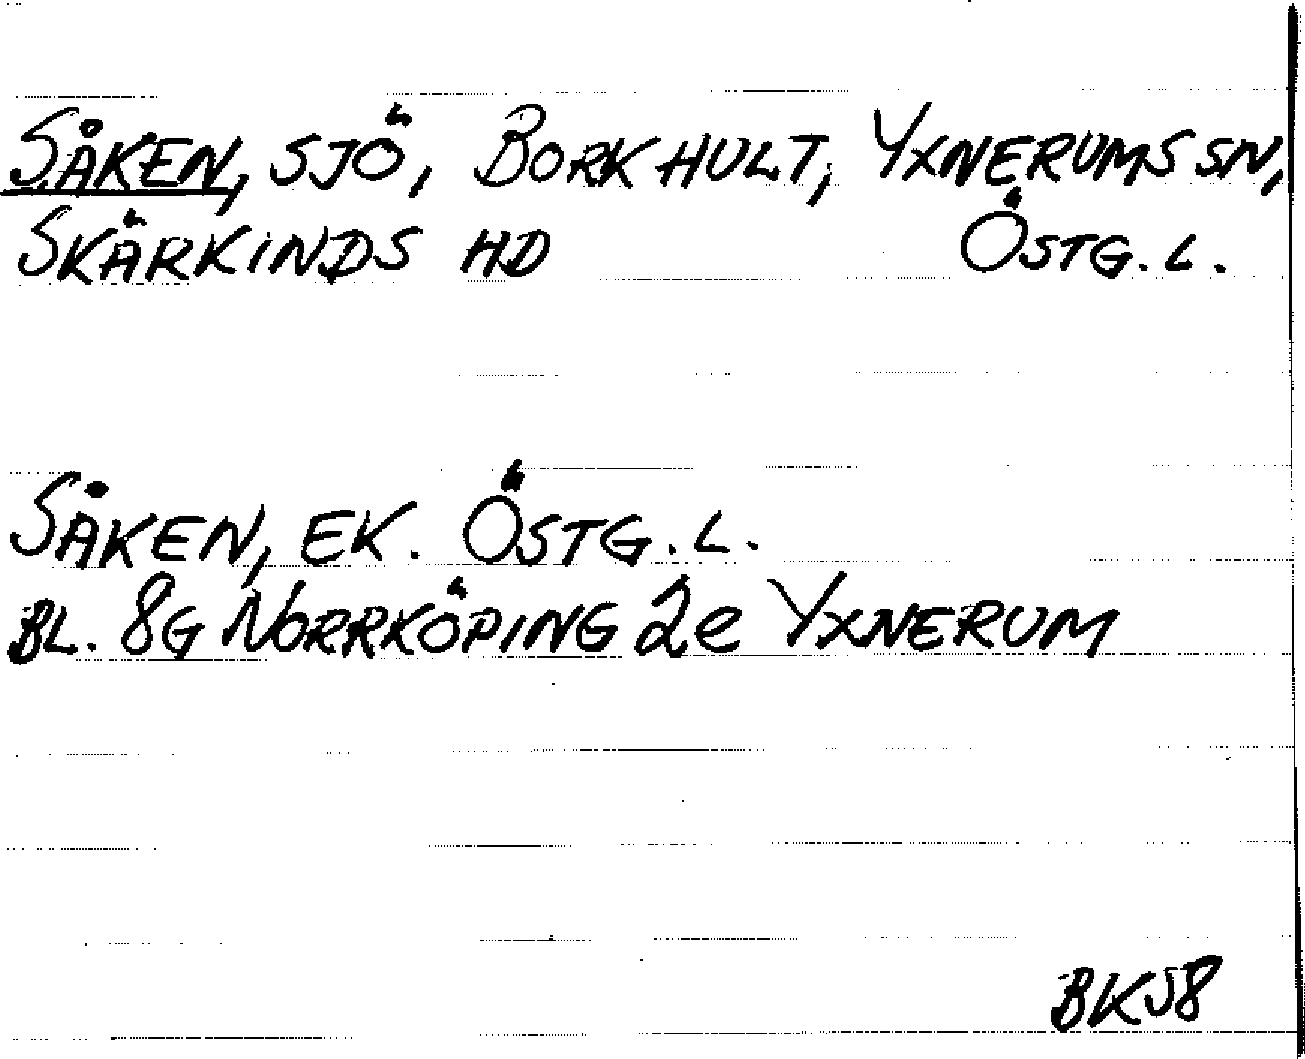 SÅKEN, SJÖ, BORKHULT, YXNERUMS SN,
SKÄRKINDS HD ÖSTG. L.
SÅKEN, EK. ÖSTG. L.
BL. 8G NORRKÖPING 2e YXNERUM
BKJ8